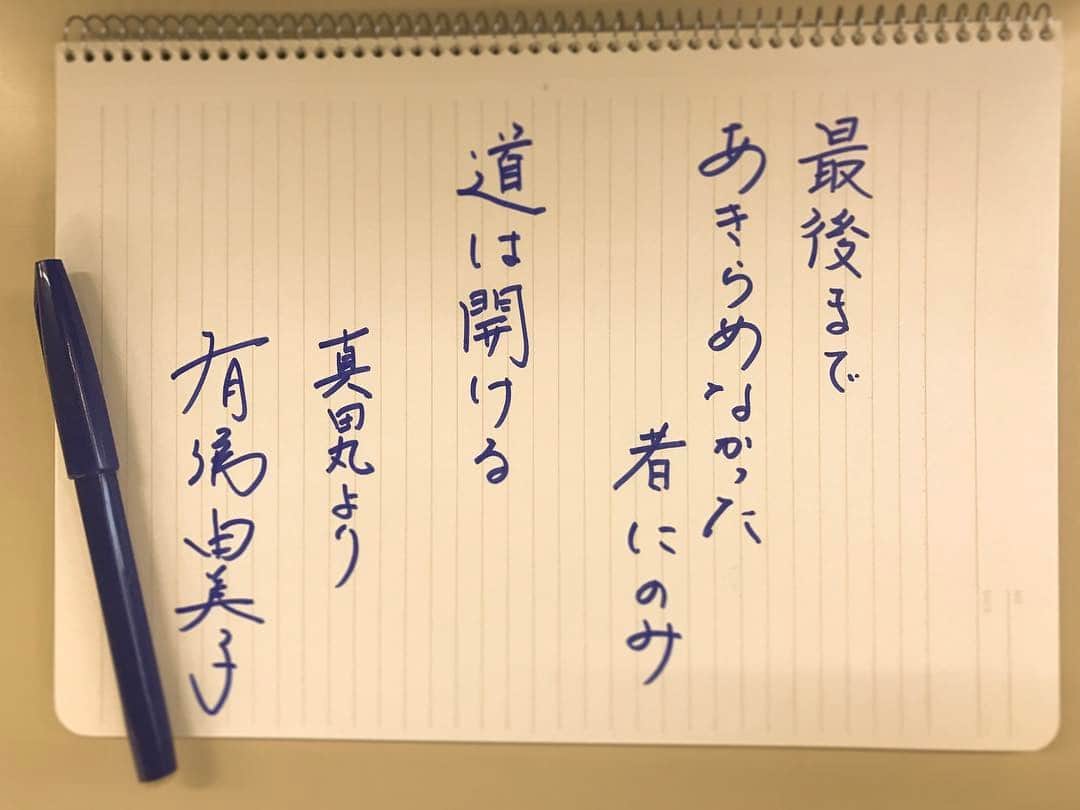 最後まで
あきらめなかった
者にのみ
道は開ける
真田丸より
有働由美子